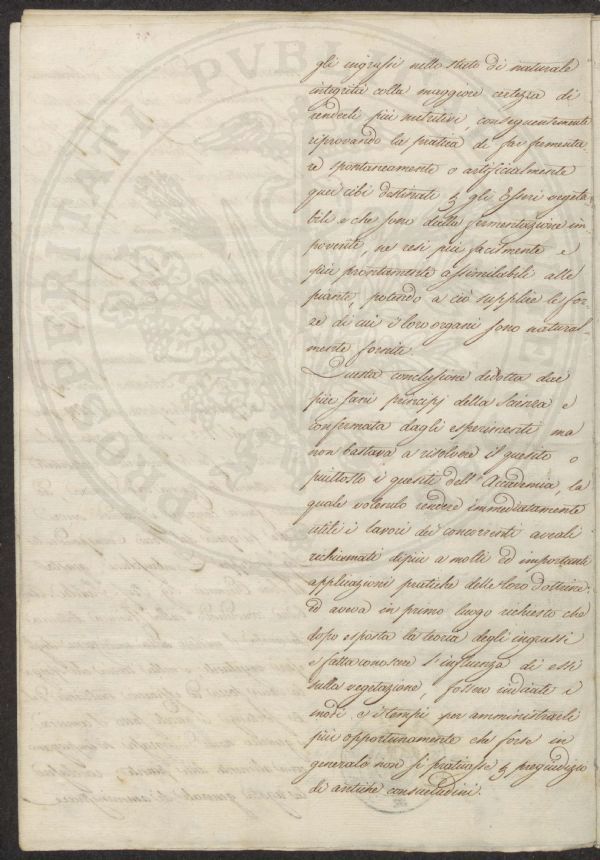 gli ingrassi nello stato di naturale
integrità colla maggiore certezza di
renderli più nutritivi, conseguentemente
riprovando la pratica di far fermenta
re spontaneamente o artificialmente
quei cibi destinati per gli Esseri vegeta
bili e che sono dalla fermentazione im
poveriti, nè resi più facilmente e
più prontamente assimilabili alle
piante, potendo a ciò supplire le for
ze di cui i loro organi sono natural
mente forniti.
Questa conclusione dedotta dai
più sani principj della scienza e
confermata dagli esperimenti ma
non bastava a risolvere il quesito o
piuttosto i quesiti dell'Accademia, la
quale volendo rendere immediatamente
utili i lavori dei concorrenti aveali
richiamati di più a molte ed importanti
applicazioni pratiche delle loro dottrine,
ed aveva in primo luogo richiesto che
dopo esposta la teoria degli ingrassi
e fatta conoscere l'influenza di essi
sulla vegetazione, fossero indicati i
modi, e i tempi per amministrarli
più opportunamente che forse in
generale non si praticasse per pregiudizio
di antiche consuetudini.
PROSPERITATI PVBLICAE